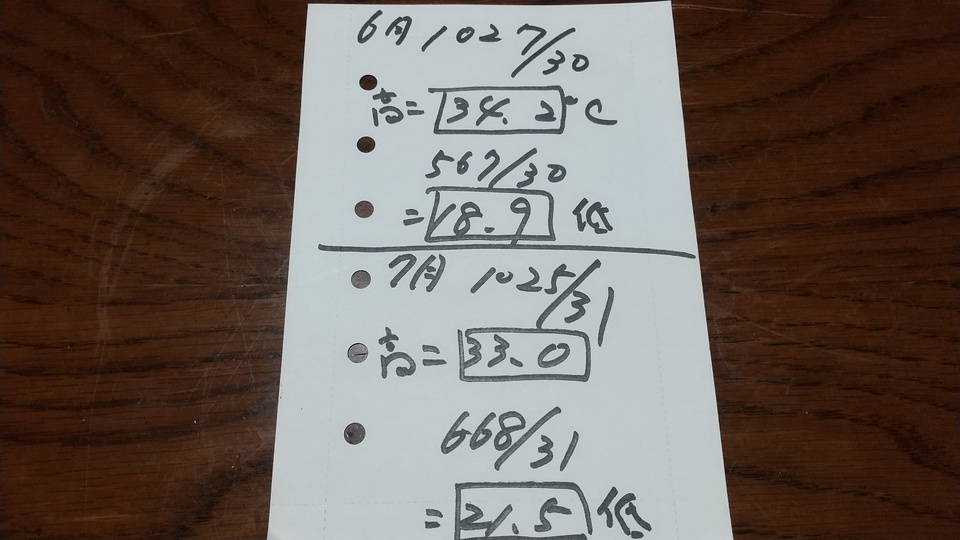 6月 1027/30
高=34.2°C
567/30
=18.9 低
7月 1025/31
高=33.0
668/31
=21.5 低